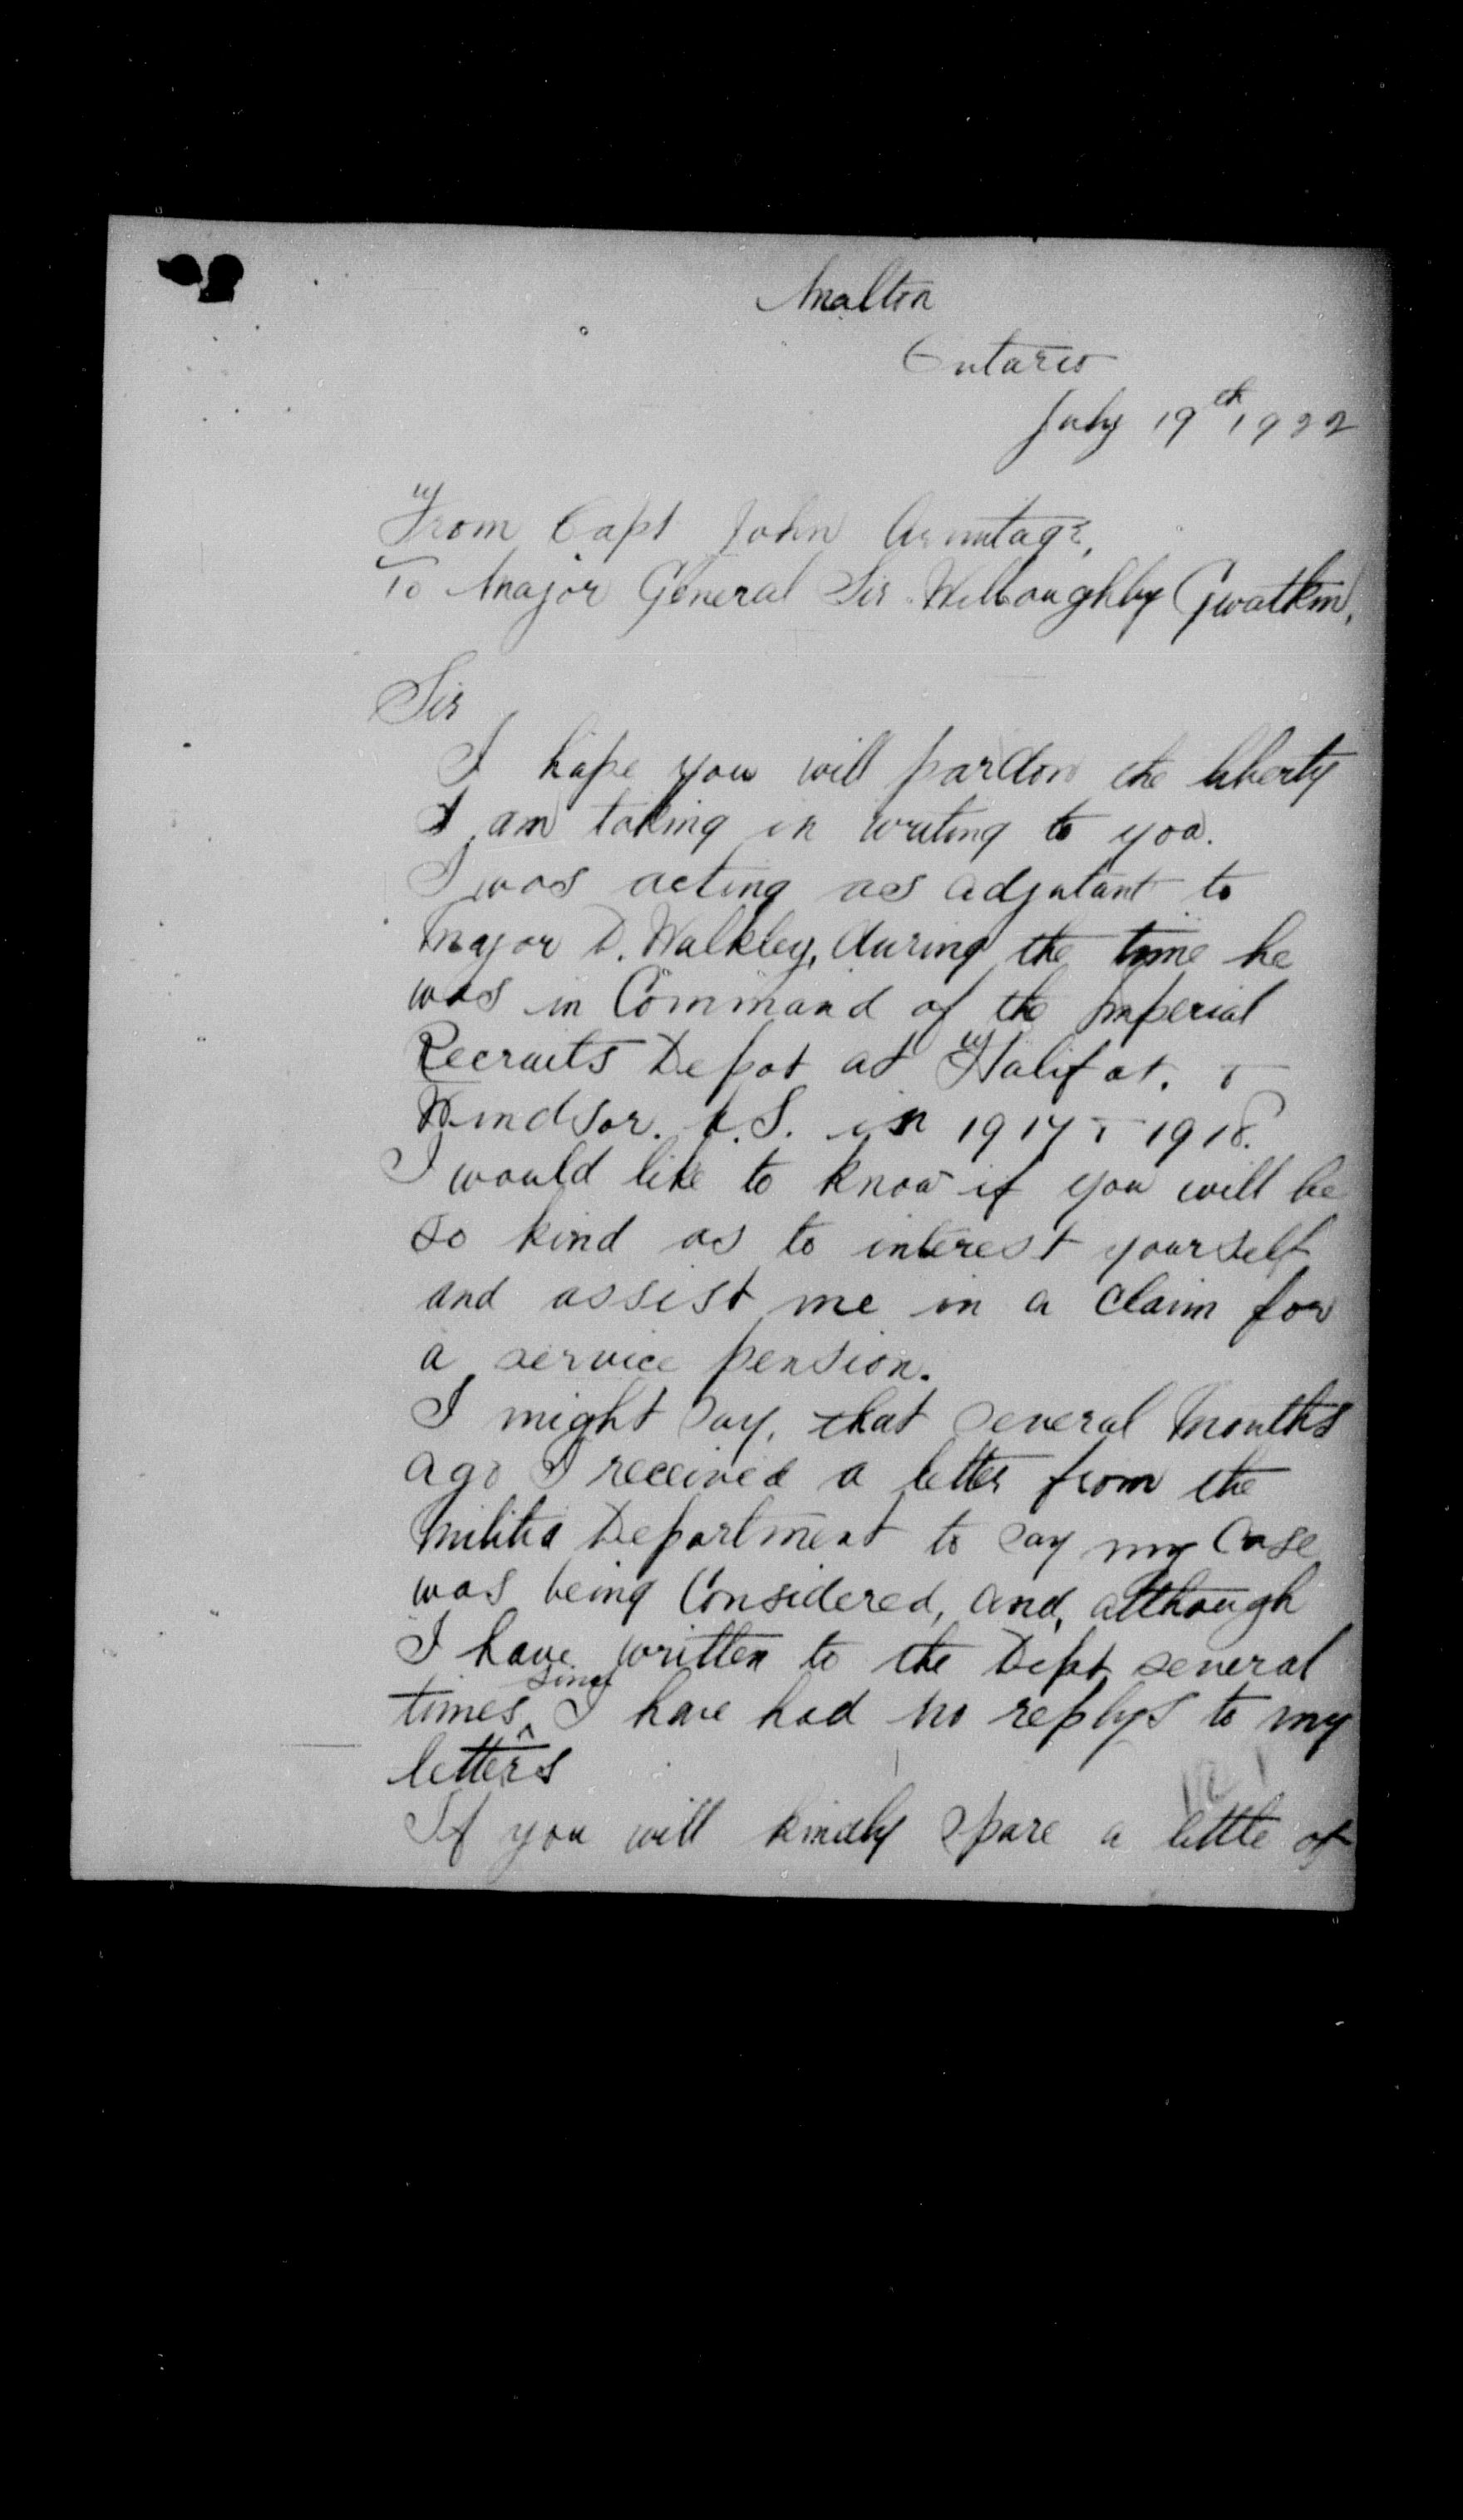 Malton
Ontario
July 19th 1922
From Capt John Armitage,
To Major General Sir Willoughby Gwatkin,
Sir
I hope you will pardon the liberty
I am taking in writing to you.
I was acting as adjutant to
Major D. Walkley, during the time he
was in Command of the Imperial
Recruits Depot at Halifax. &
Windsor. N.S. in 1917 & 1918.
I would like to know if you will be
so kind as to interest yourself
and assist me in a claim for
a service pension.
I might say, that several months
ago I received a letter from the
Militia Department to say my case
was being Considered, and, although
I have written to the Dept several
times since I have had no replys to my
letters
If you will kindly spare a little of